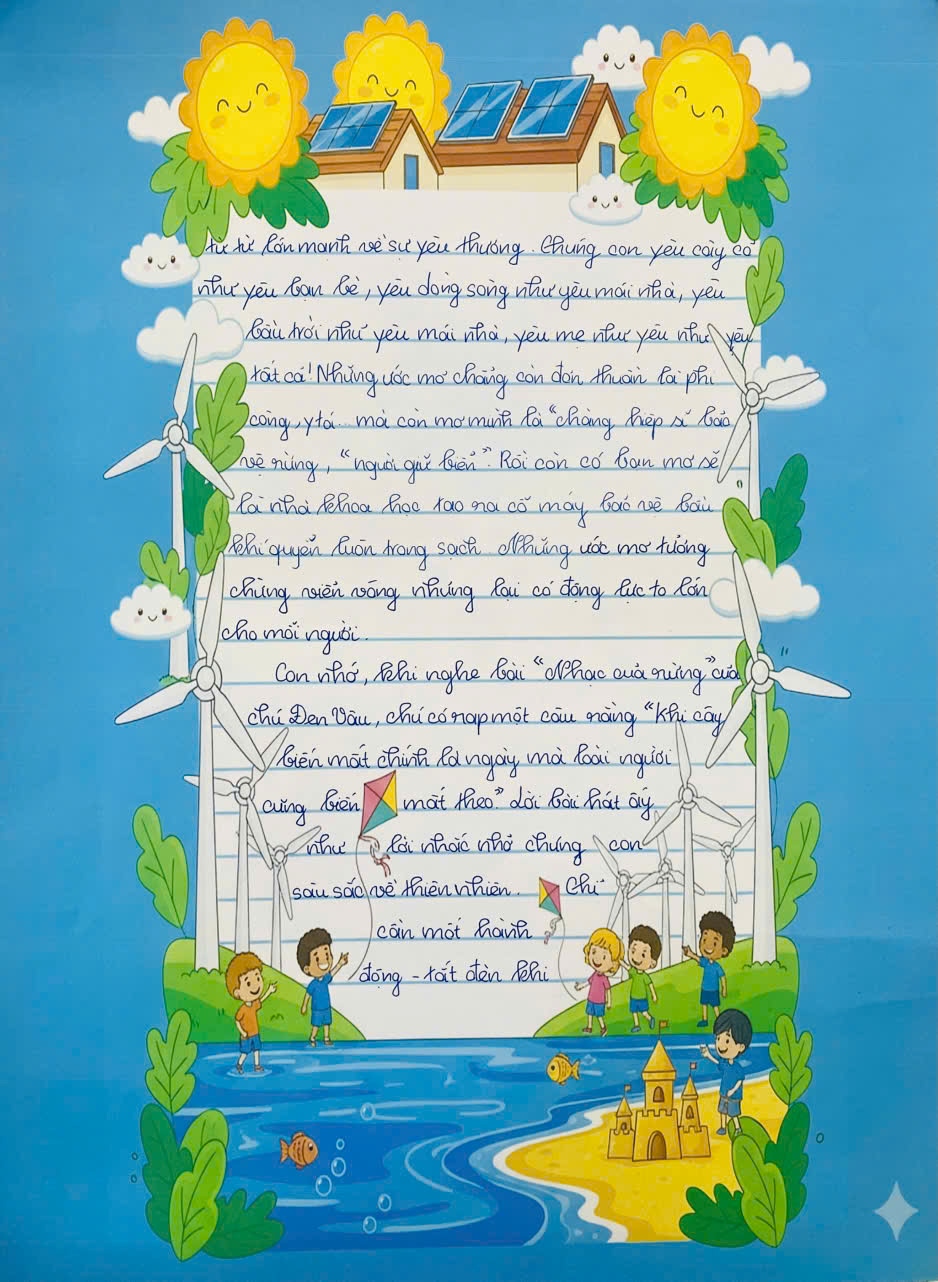 từ từ lớn mạnh về sự yêu thương. Chúng con yêu cây cỏ
như yêu bạn bè, yêu dòng sông như yêu mái nhà, yêu
bầu trời như yêu mái nhà, yêu mẹ như yêu như yêu
tất cả! Những ước mơ chẳng còn đơn thuần là phi
công, y tá... mà còn mơ mình là "chàng hiệp sĩ bảo
vệ rừng, "người giữ biển". Rồi còn có bạn mơ sẽ
là nhà khoa học tạo ra cỗ máy bảo vệ bầu
khí quyển luôn trong sạch. Những ước mơ tưởng
chừng viển vông nhưng lại có động lực to lớn
cho mỗi người.
Con nhớ, khi nghe bài "Nhạc của rừng" của
chú Đen Vâu, chú có rap một câu rằng "Khi cây
biến mất chính là ngày mà loài người
cũng biến mất theo". Lời bài hát ấy
như lời nhắc nhở chúng con
sâu sắc về thiên nhiên. Chỉ
cần một hành
động - tắt đèn khi